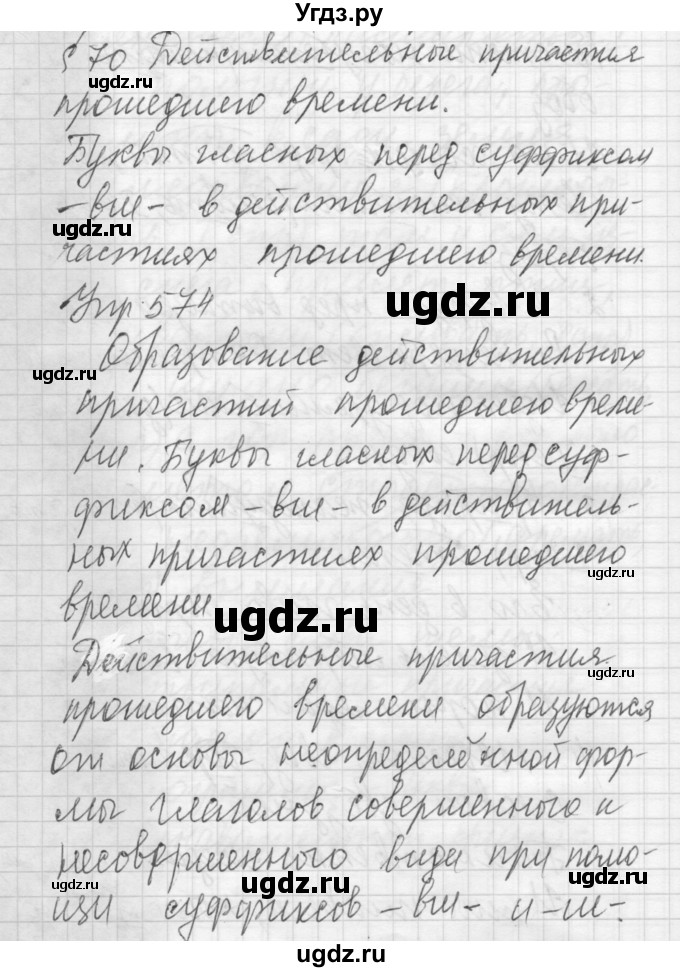 Угдз.ру
§ 70 Действительные причастия
прошедшего времени.
ugdz.ru
Буквы гласных перед суффиксом
-вш- в действительных при-
ugdz.ru
частиях прошедшего времени.
Упр 574
ugdz.ru
Образование действительных
ugdz.ru
причастий прошедшего време-
ни. Буквы гласных перед суф-
фиксом -вш- в действитель-
ных причастиях прошедшего
ugdz.ru
времени
ugdz.ru
Действительные причастия
ugdz.ru
прошедшего времени образуются
от основы неопределённой фор-
мы глаголов совершенного и
несовершенного вида при помо-
ugdz.ru
ugdz.ru
ugdz.ru
щи суффиксов -вш- и -ш-.
ugdz.ru